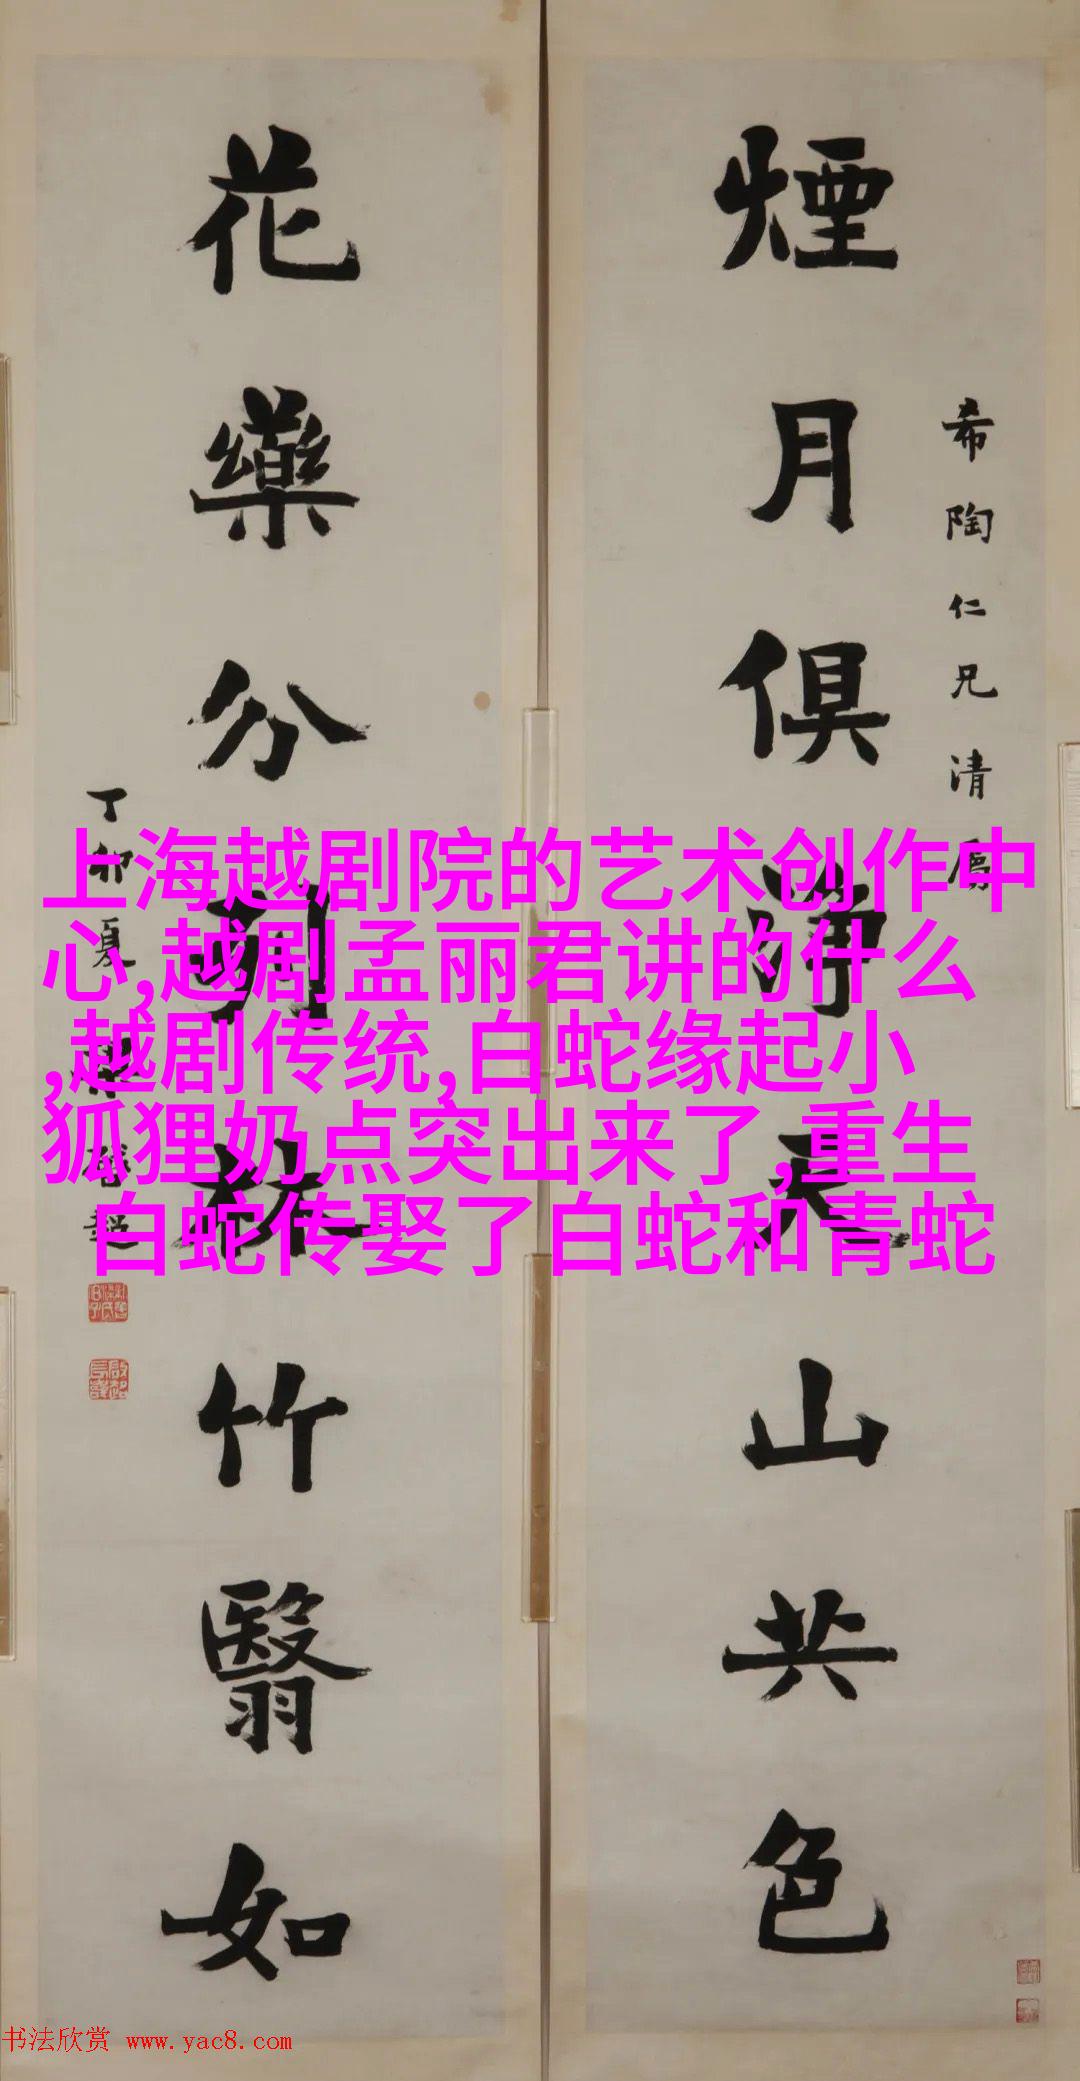 煙月俱淨天山共色
希陶仁兄清属
花藥分列林竹翳如
丁卯夏梁啟超
上海越剧院的艺术创作中
心,越剧孟丽君讲的什么
,越剧传统,白蛇缘起小
狐狸奶点突出来了,重生
白蛇传娶了白蛇和青蛇
书法欣赏 www.yac8.com